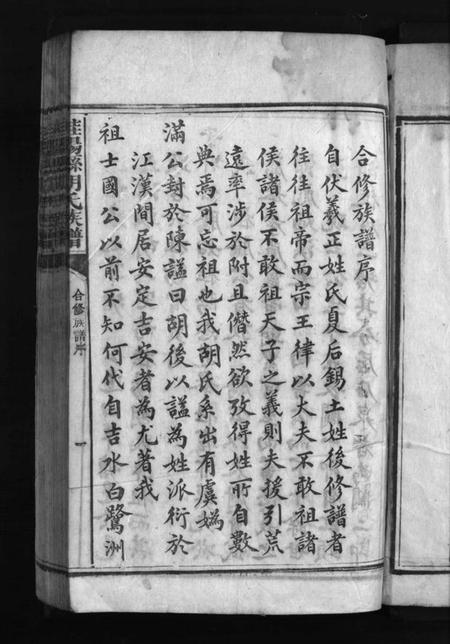 合修族譜序
自伏羲正姓氏夏后錫土姓後修譜者
往往祖帝而宗王律以大夫不敢祖諸
侯諸侯不敢祖天子之義則夫援引荒
遠率涉於附且僭然欲攷得姓所自數
典焉可忘祖也我胡氏系出有虞媯
滿公封於陳謚曰胡後以謚為姓派衍於
江漢間居安定吉安者為尤著我
祖士國公以前不知何代自吉水白鷺洲
桂陽縣胡氏族譜
合修族譜序
一